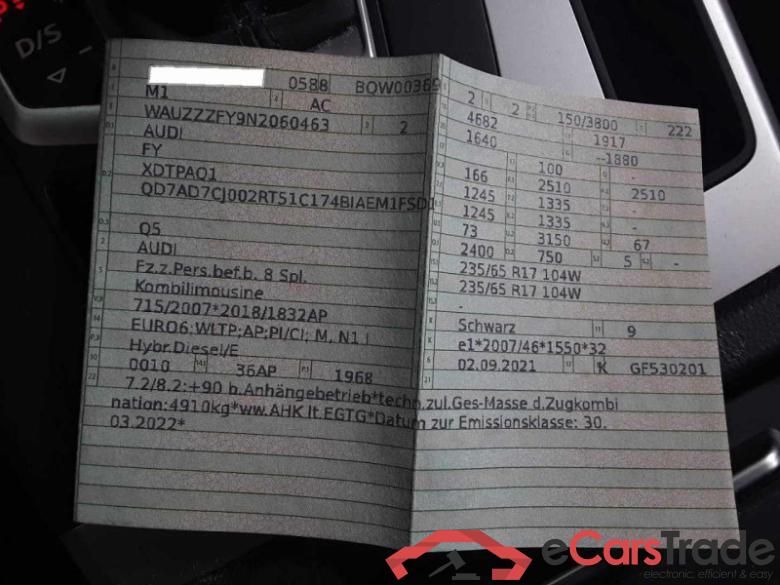 D/S
0588 BQW00369
M1 AC
WAUZZZFY9N2060463 2
AUDI
FY
XDTPAQ1
QD7AD7CJ002RT51C174BIAEM1FSD1
Q5
AUDI
Fz.z.Pers.bef.b. 8 Spl.
Kombilimousine
715/2007*2018/1832AP
EURO6;WLTP;AP;PI/CI; M, N1 I
Hybr.Diesel/E
0010 36AP 1968
2 2 150/3800 222
4682 1917
1640 --1880
100 -
166 2510 2510
1245 1335 -
1245 1335 -
73 3150 67
2400 750 5 -
235/65 R17 104W
235/65 R17 104W
-
Schwarz 9
e1*2007/46*1550*32
02.09.2021 K GF530201
7.2/8.2:+90 b.Anhängebetrieb*techn.zul.Ges-Masse d.Zugkombi
nation:4910kg*ww.AHK lt.EGTG*Datum zur Emissionsklasse: 30.
03.2022*
eCarsTrade
electronic, efficient & easy